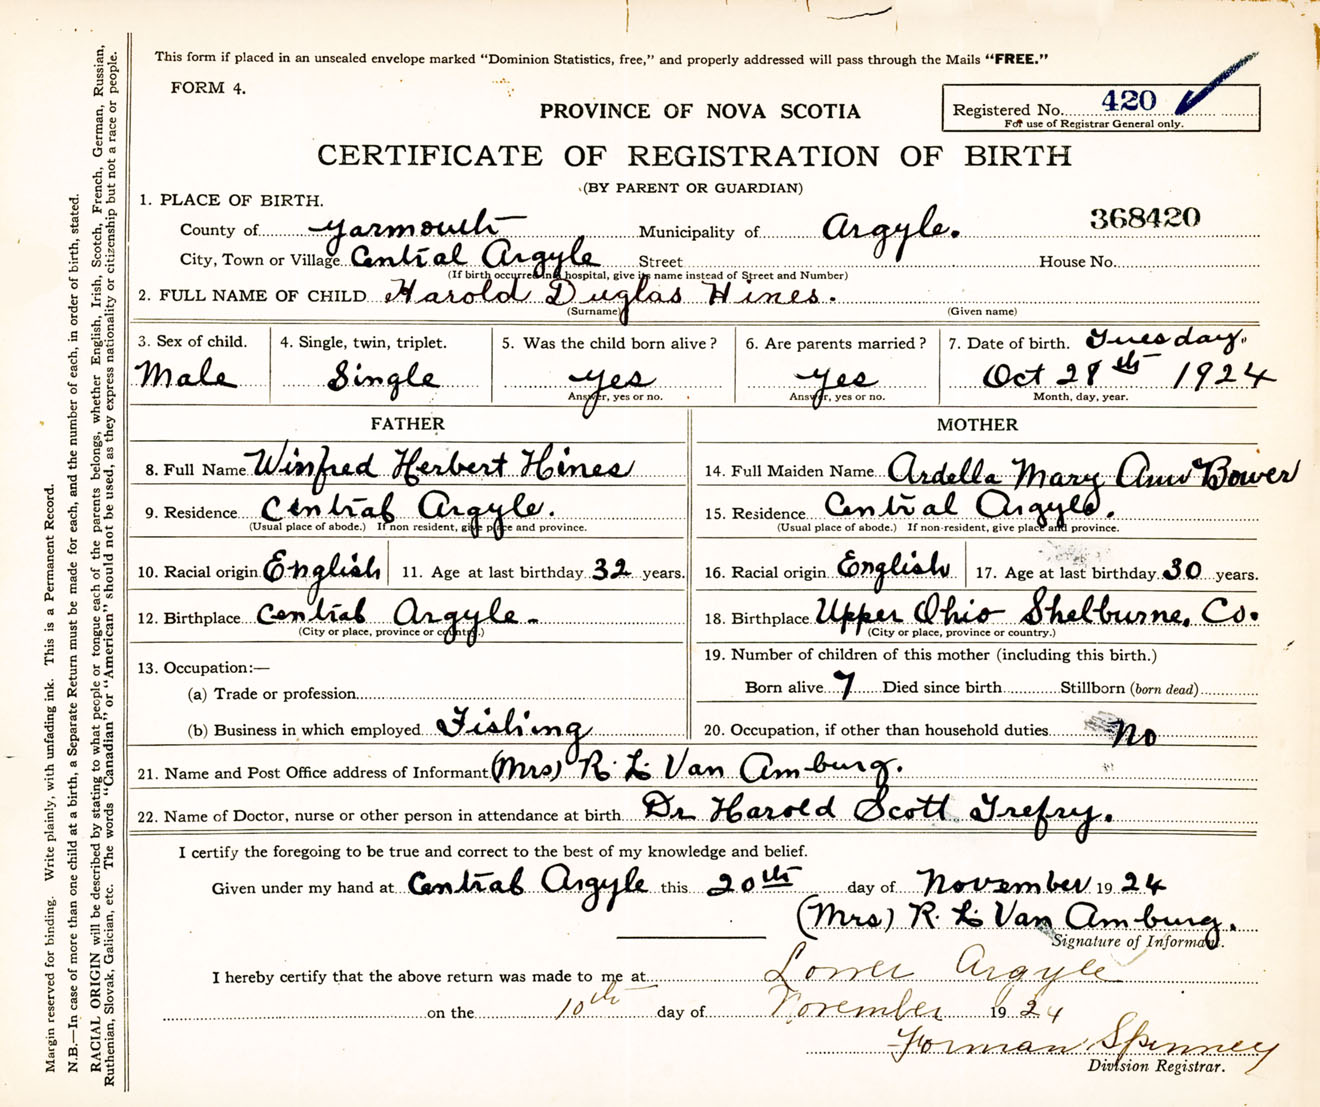 This form if placed in an unsealed envelope marked "Dominion Statistics, free," and properly addressed will pass through the Mails "FREE."
FORM 4.
PROVINCE OF NOVA SCOTIA
Registered No. 420
For use of Registrar General only.
CERTIFICATE OF REGISTRATION OF BIRTH
(BY PARENT OR GUARDIAN)
1. PLACE OF BIRTH.
368420
County of Yarmouth Municipality of Argyle.
City, Town or Village Central Argyle Street House No.
(If birth occurred in a hospital, give its name instead of Street and Number)
2. FULL NAME OF CHILD Harold Duglas Hines.
(Surname) (Given name)
3. Sex of child. 4. Single, twin, triplet. 5. Was the child born alive? 6. Are parents married? 7. Date of birth. Tuesday.
Male Single yes yes Oct 28th 1924
Answer, yes or no. Answer, yes or no. Month, day, year.
FATHER MOTHER
8. Full Name Winfred Herbert Hines 14. Full Maiden Name Ardella Mary Ann Bower
9. Residence Central Argyle. 15. Residence Central Argyle.
(Usual place of abode.) If non resident, give place and province. (Usual place of abode.) If non-resident, give place and province.
10. Racial origin English 11. Age at last birthday 32 years. 16. Racial origin English 17. Age at last birthday 30 years.
12. Birthplace Central Argyle. 18. Birthplace Upper Ohio Shelburne, Co.
(City or place, province or country.) (City or place, province or country.)
13. Occupation:— 19. Number of children of this mother (including this birth.)
(a) Trade or profession Born alive 7 Died since birth Stillborn (born dead)
(b) Business in which employed Fishing 20. Occupation, if other than household duties No
21. Name and Post Office address of Informant (Mrs) R. L. Van Amburg.
22. Name of Doctor, nurse or other person in attendance at birth Dr Harold Scott Trefry.
I certify the foregoing to be true and correct to the best of my knowledge and belief.
Given under my hand at Central Argyle this 20th day of November 1924
(Mrs) R. L. Van Amburg.
Signature of Informant.
I hereby certify that the above return was made to me at Lower Argyle
on the 10th day of November 1924
Forman Spinney
Division Registrar.
Margin reserved for binding. Write plainly, with unfading ink. This is a Permanent Record.
N.B.—In case of more than one child at a birth, a Separate Return must be made for each, and the number of each, in order of birth, stated.
RACIAL ORIGIN will be described by stating to what people or tongue each of the parents belongs, whether English, Irish, Scotch, French, German, Russian,
Ruthenian, Slovak, Galician, etc. The words "Canadian" or "American" should not be used, as they express nationality or citizenship but not a race or people.